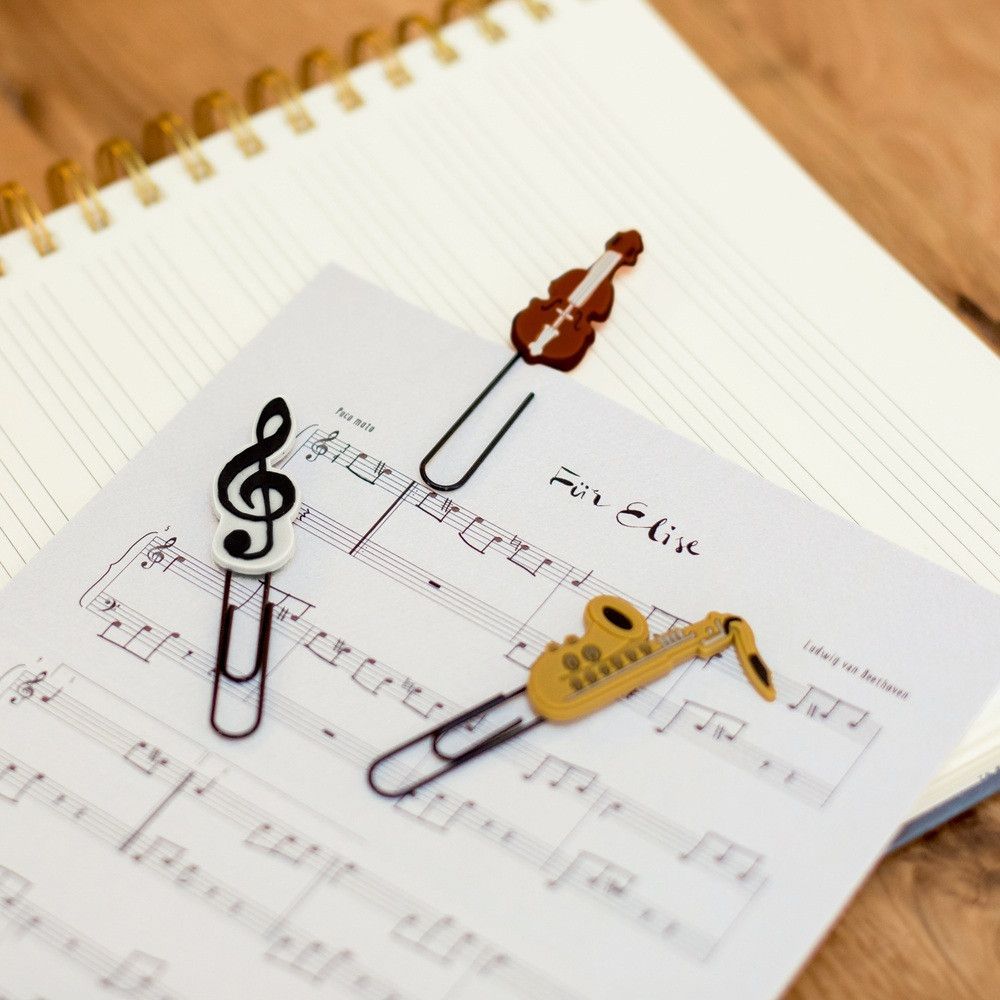 Für Elise
Poco moto
Ludwig van Beethoven
5